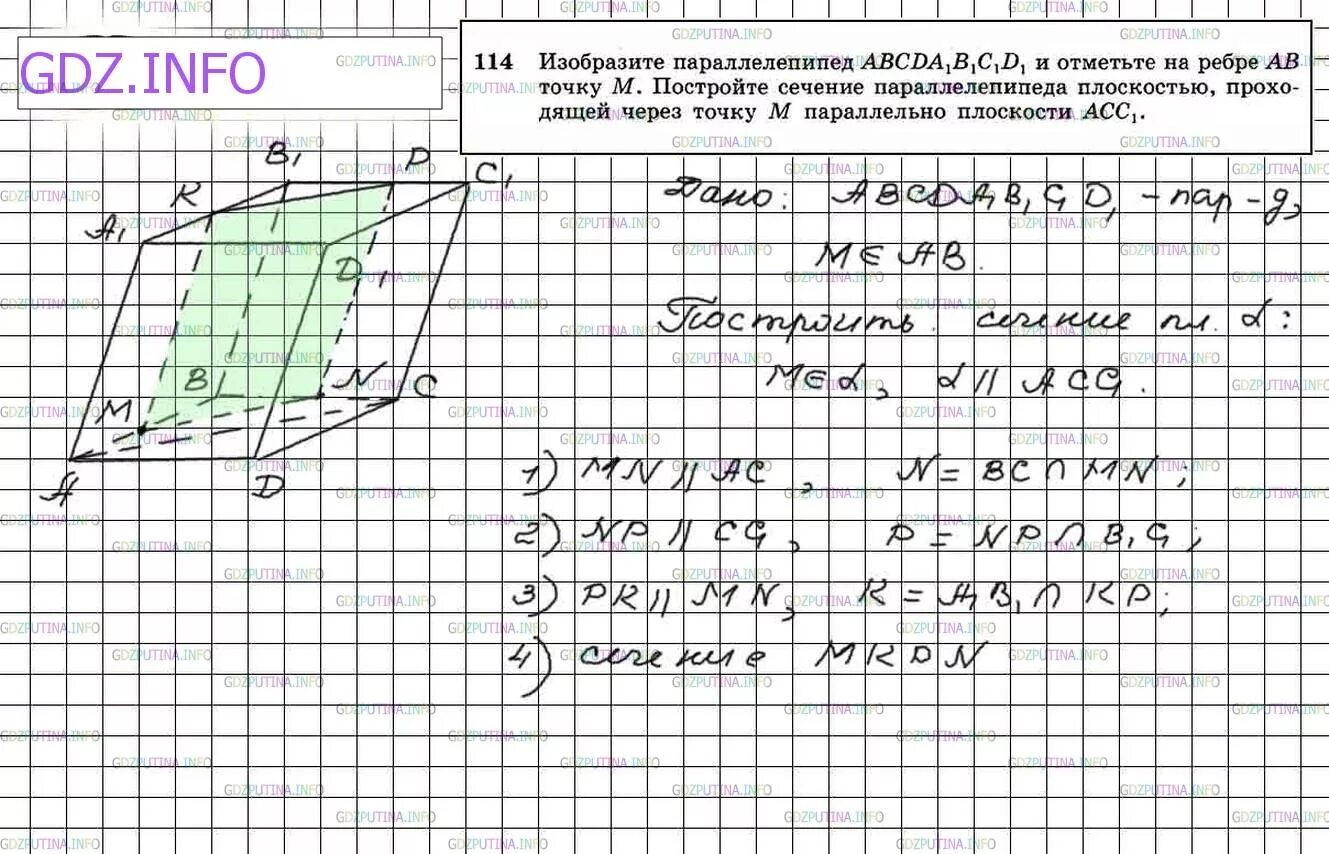 GDZ.INFO
114 Изобразите параллелепипед ABCDA₁B₁C₁D₁ и отметьте на ребре AB
точку M. Постройте сечение параллелепипеда плоскостью, прохо-
дящей через точку M параллельно плоскости ACC₁.
B₁ P C₁
K
A₁
D₁
B N C
M
A D
Дано: ABCDA₁B₁C₁D₁ - пар-д,
M∈AB.
Построить сечение пл. α:
M∈α, α || ACC₁.
1) MN || AC, N = BC ∩ MN;
2) NP || CC₁, P = NP ∩ B₁C₁;
3) PK || MN, K = A₁B₁ ∩ KP;
4) сечение MKPN
GDZPUTINA.INFO